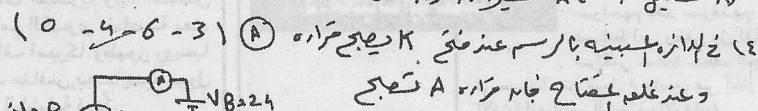 ١٤) في الدائرة المبينه بالرسم عند فتح K يصبح قراءه (A) (3 - 6 - 4 - 5)
وعند غلق المفتاح فان قراءه A تصبح
A
VB=24